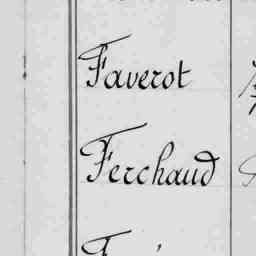 Faverot
Ferchaud